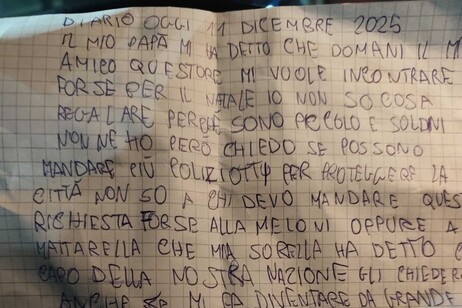 DIARIO OGGI 11 DICEMBRE 2025
IL MIO PAPÀ MI HA DETTO CHE DOMANI IL M
AMICO QUESTORE MI VUOLE INCONTRARE
FORSE PER IL NATALE IO NON SO COSA
REGALARE PERCHÉ SONO PICCOLO E SOLDINI
NON NE HO PERÒ CHIEDO SE POSSONO
MANDARE PIÙ POLIZIOTTI PER PROTEGGERE LA
CITTÀ NON SO A CHI DEVO MANDARE QUES
RICHIESTA FORSE ALLA MELONI OPPURE A
MATTARELLA CHE MIA SORELLA HA DETTO C
CAPO DELLA NOSTRA NAZIONE GLI CHIEDER
ANCHE SE MI FA DIVENTARE DA GRANDE